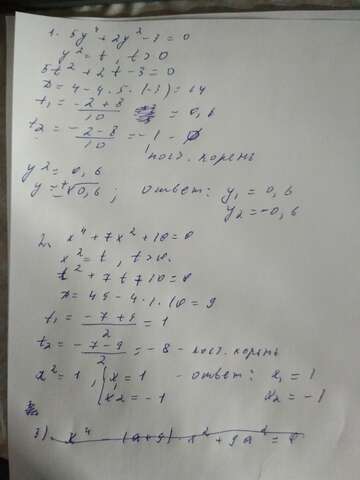 1. 5y⁴ + 2y² - 3 = 0
y² = t, t > 0
5t² + 2t - 3 = 0
D = 4 - 4 . 5 . (-3) = 64
t₁ = (-2 + 8)/10 = 0,6
t₂ = (-2 - 8)/10 = -1 - ∅
пост. корень
y² = 0,6
y = ±√0,6 ; ответ: y₁ = 0,6
y₂ = -0,6
2. x⁴ + 7x² + 10 = 0
x² = t, t > 0.
t² + 7t + 10 = 0
D = 49 - 4 . 1 . 10 = 9
t₁ = (-7 + 9)/2 = 1
t₂ = (-7 - 9)/2 = -8 - пост. корень
x² = 1, { x₁ = 1 - ответ: x₁ = 1
x₂ = -1 x₂ = -1
3). x⁴ - (a+9) x² + 9a² = 0